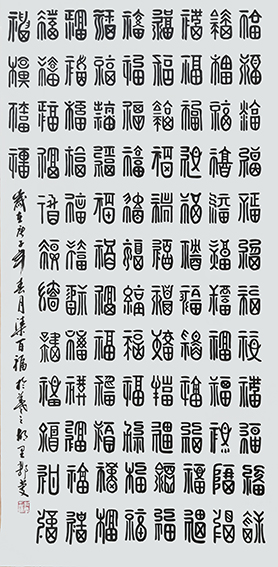 福福福福福福福福福福福福
福福福福福福福福福福福福
福福福福福福福福福福福福
福福福福福福福福福福福福
福福福福福福福福福福福福
福福福福福福福福福福福福
福福福福福福福福福福福福
福福福福福福福福福福福福
福福福福
歲在庚子年春月集百福於羲之故里郭